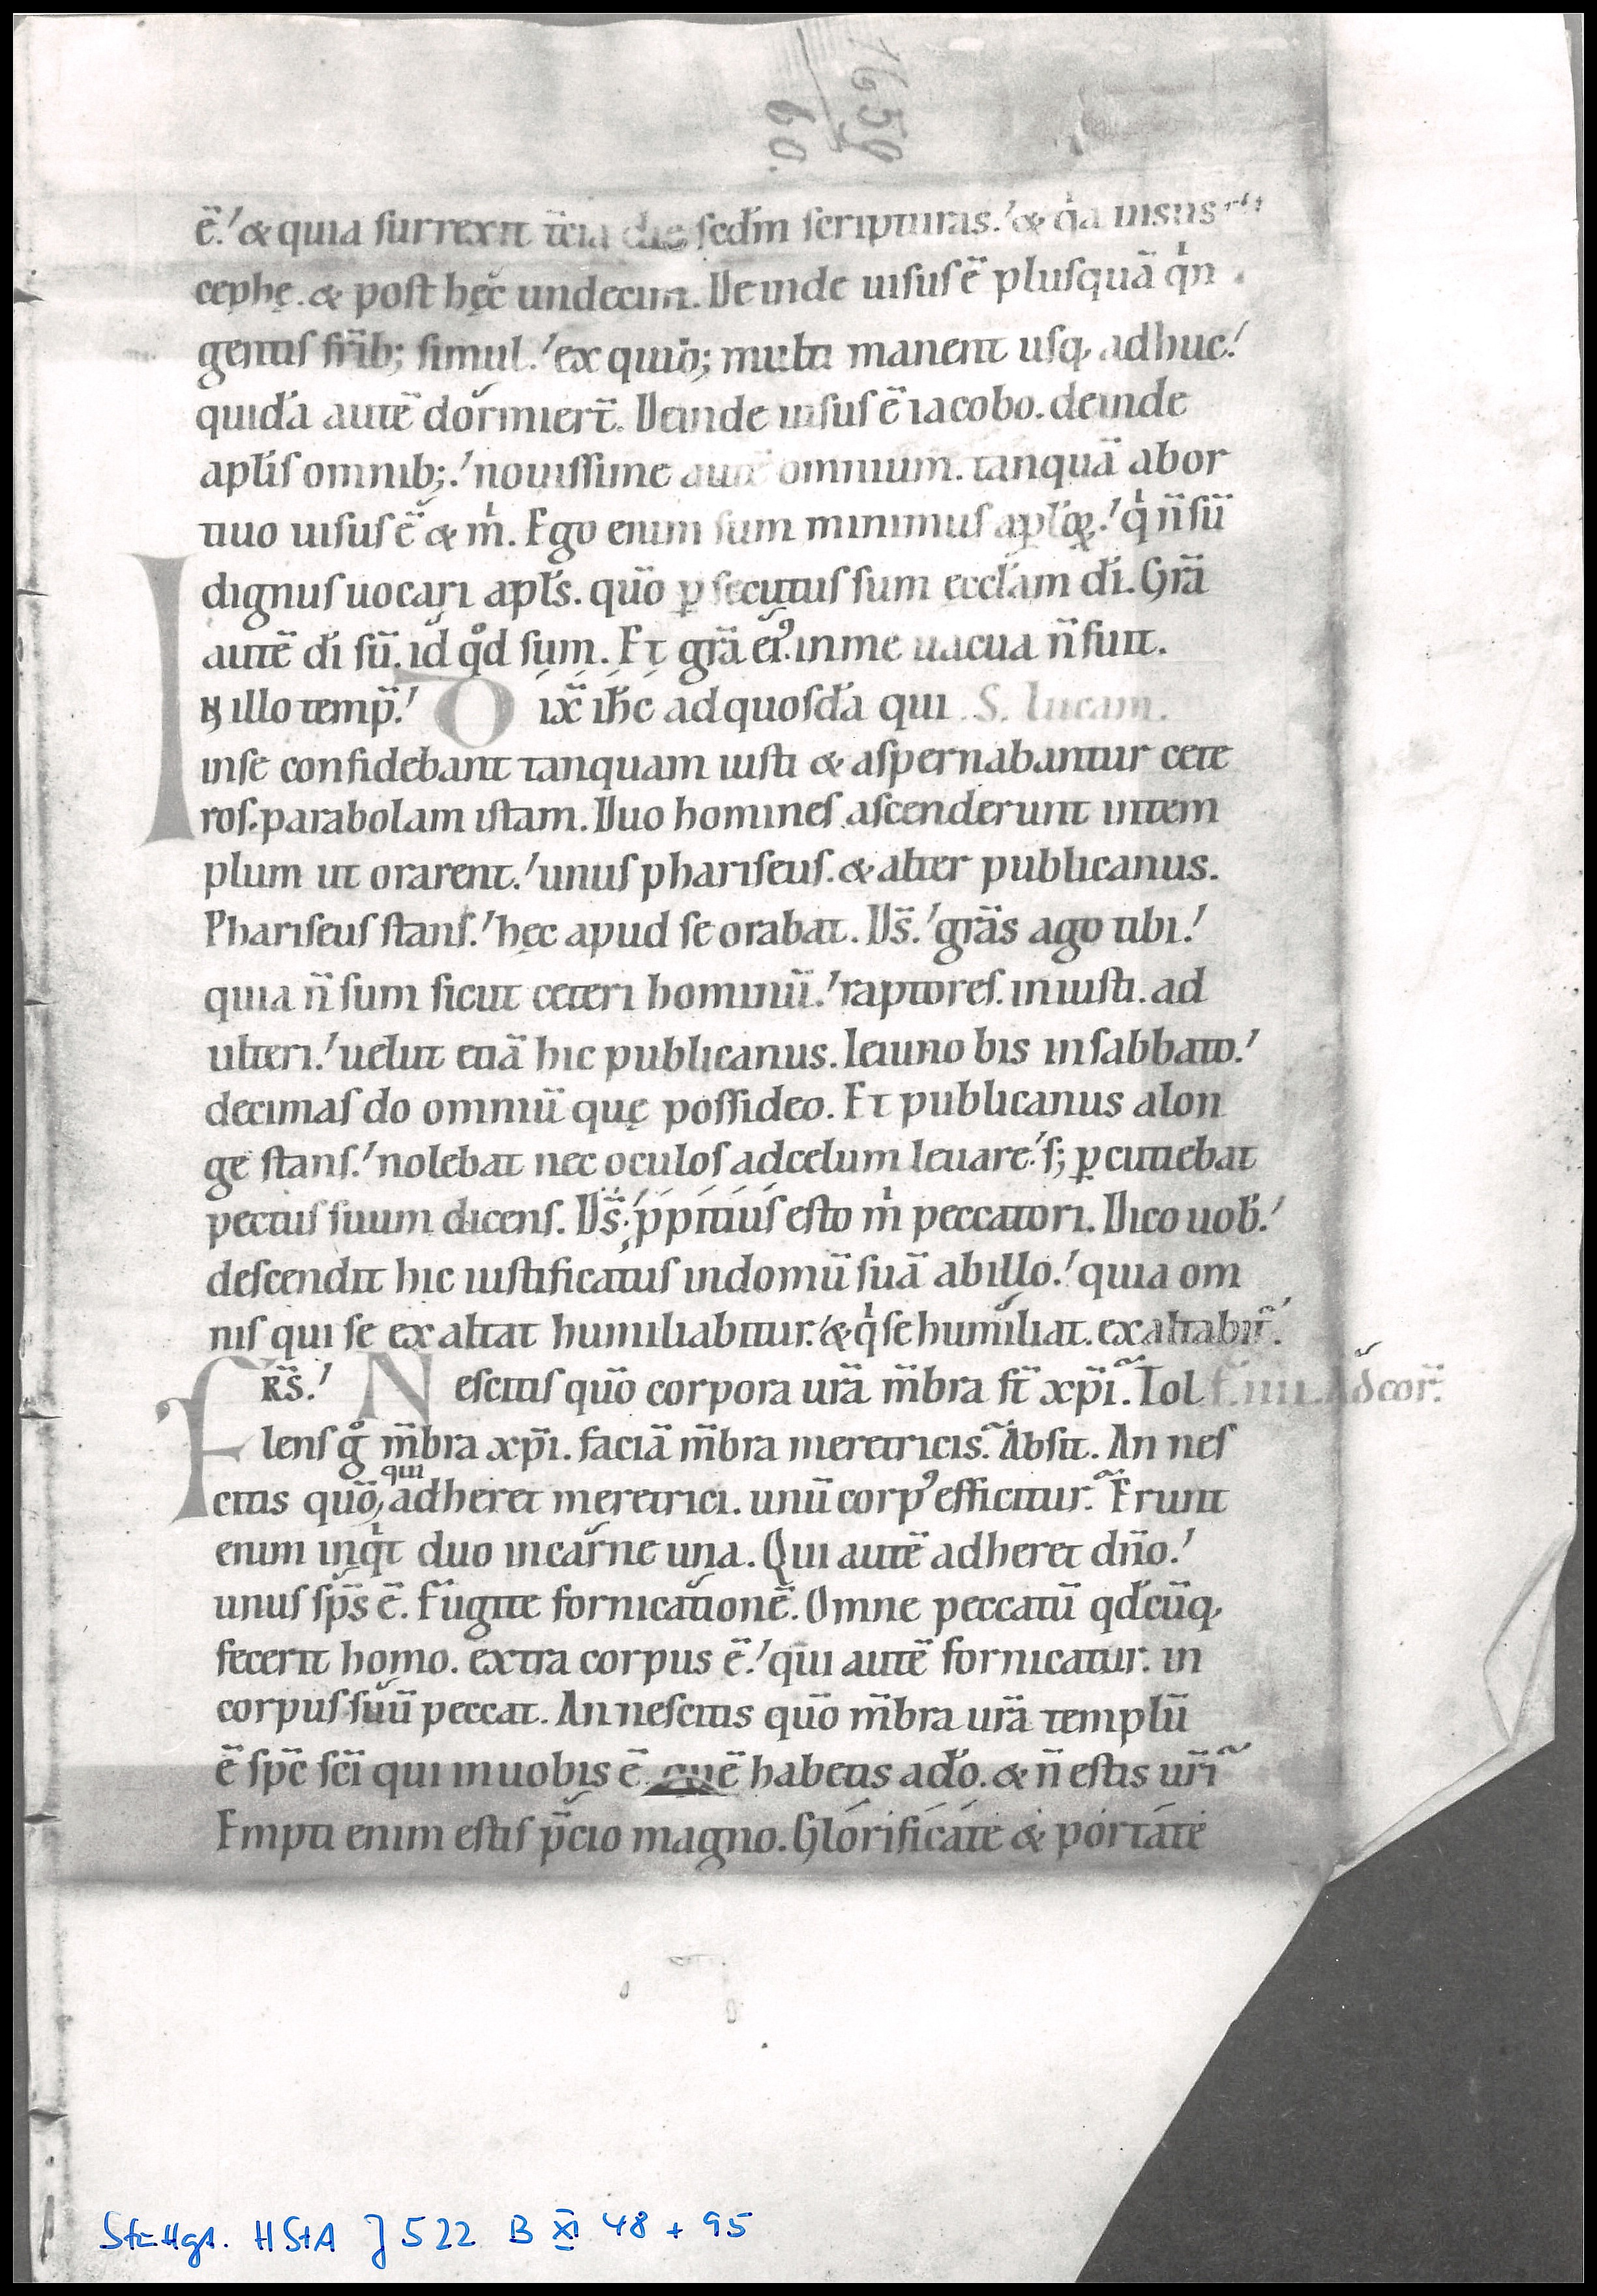 1659
60.
ē.' & quia surrexit t̄cia die sed̄m scripturas.' & q̇a uisus
cephę. & post hęc undecim. Deinde uisus ē plusquā q̇n
gentis fr̄ib; simul.' ex quib; multi manent usq, adhuc.'
quidā autē dormiert̄. Deinde uisus ē iacobo. deinde
aplīs omnib;.' nouissime autē omnium. tanquā abor
tiuo uisus ē & m̍. Ego enim sum minimus aplōꝝ.' q̍ n̄ sū
dignus uocari apl̄s. quō p̱secutus sum eccl̄am dī. Grā
autē dī sū. id qͦd sum. Et grā ei᾽. in me uacua n̄ fuit.
IN illo temp̄.' Dix̄ ih̄c ad quosdā qui S. lucam.
inse confidebant tanquam iusti & aspernabantur cete
ros. parabolam istam. Duo homines ascenderunt intem
plum ut orarent.' unus phariseus. & alter publicanus.
Phariseus stans.' hęc apud se orabat. Ds̄.' grās ago tibi.'
quia n̄ sum sicut ceteri hominū.' raptores. iniusti. ad
ulteri.' uelut etiā hic publicanus. Ieiuno bis insabbato.'
decimas do omniū quę possideo. Et publicanus alon
ge stans.' nolebat nec oculos adcelum leuare.' s; p̱cutiebat
pectus suum dicens. Ds̄.' p̱pitius esto m̍ peccatori. Dico uob̄.'
descendit hic iustificatus indomū suā abillo.' quia om
nis qui se exaltat humiliabitur.' & q̍ se humiliat. exaltabit̄.
FRS̄.' Nescitis quō corpora urā m̄bra st̄ xp̄i. Tol f. iiii. Ad cor̄.
lens gͦ m̄bra xp̄i. faciā m̄bra meretricis. Absit. An nes
citis quō, qui adheret meretrici. unū corp᾽ efficitur. Erunt
enim inq̍t duo incarne una. Qui autē adheret dn̄o.'
unus sp̄s ē. Fugite fornicationē. Omne peccatū qd̄cūq,
fecerit homo. extra corpus ē.' qui autē fornicatur. in
corpus suū peccat. An nescitis quō m̄bra urā templū
ē sp̄c sc̄i qui inuobis ē quē habetis adō. & n̄ estis ur̄i
Empti enim estis p̄cio magno. Glorificate & portate
Stuttgt. HStA J 522 B XI 48 + 95